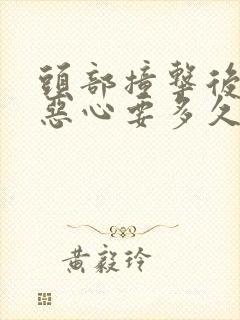 頭部撞擊後
惡心要多久
黃毅玲